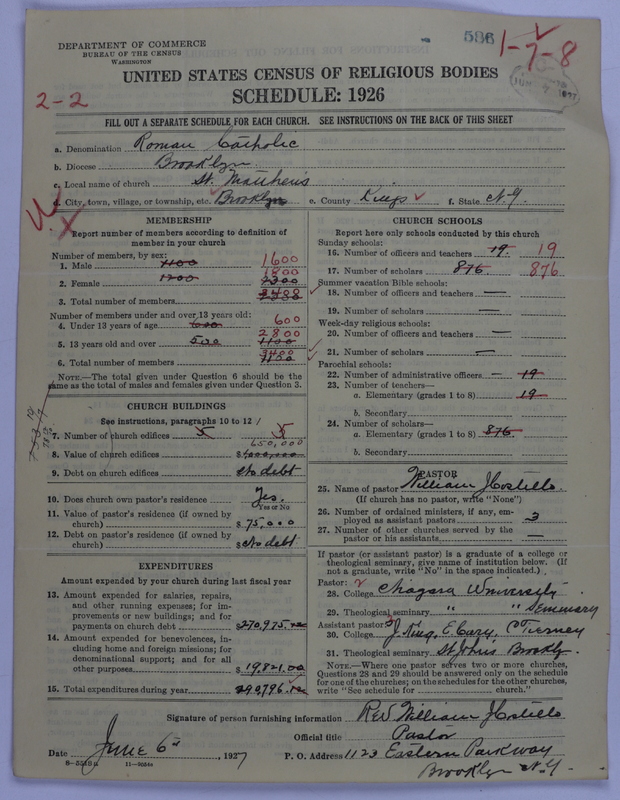 586
1-7-8
DEPARTMENT OF COMMERCE
BUREAU OF THE CENSUS
WASHINGTON
UNITED STATES CENSUS OF RELIGIOUS BODIES
SCHEDULE: 1926
2-2
FILL OUT A SEPARATE SCHEDULE FOR EACH CHURCH. SEE INSTRUCTIONS ON THE BACK OF THIS SHEET
a. Denomination Roman Catholic
b. Diocese Brooklyn
c. Local name of church St. Matthew's
d. City, town, village, or township, etc. Brooklyn e. County Kings f. State N.Y.
MEMBERSHIP
Report number of members according to definition of
member in your church
Number of members, by sex:
1. Male 1100 1600
2. Female 1200 1800 2300
3. Total number of members
Number of members under and over 13 years old:
4. Under 13 years of age 600 600
5. 13 years old and over 500 2800 1100
6. Total number of members 3400
NOTE.—The total given under Question 6 should be the
same as the total of males and females given under Question 3.
CHURCH BUILDINGS
See instructions, paragraphs 10 to 12
7. Number of church edifices 5 5
650,000
8. Value of church edifices $1,000,000
9. Debt on church edifices no debt
10. Does church own pastor's residence Yes.
Yes or No
11. Value of pastor's residence (if owned by
church) $75,000
12. Debt on pastor's residence (if owned by
church) $no debt
EXPENDITURES
Amount expended by your church during last fiscal year
13. Amount expended for salaries, repairs,
and other running expenses; for im-
provements or new buildings; and for
payments on church debt 270,975.
14. Amount expended for benevolences, in-
cluding home and foreign missions; for
denominational support; and for all
other purposes $19,821.00
15. Total expenditures during year
CHURCH SCHOOLS
Report here only schools conducted by this church
Sunday schools:
16. Number of officers and teachers 19. 19
17. Number of scholars 876. 876
Summer vacation Bible schools:
18. Number of officers and teachers —
19. Number of scholars —
Week-day religious schools:
20. Number of officers and teachers —
21. Number of scholars —
Parochial schools:
22. Number of administrative officers — 19
23. Number of teachers—
a. Elementary (grades 1 to 8) 19
b. Secondary
24. Number of scholars—
a. Elementary (grades 1 to 8) 876.
b. Secondary
PASTOR
25. Name of pastor William J Costello.
(If church has no pastor, write "None")
26. Number of ordained ministers, if any, em-
ployed as assistant pastors 3
27. Number of other churches served by the
pastor or his assistants —
If pastor (or assistant pastor) is a graduate of a college or
theological seminary, give name of institution below. (If
not a graduate, write "No" in the space indicated.)
Pastor:
28. College Niagara University
29. Theological seminary " " Seminary
Assistant pastor: 3
30. College J. King, E. Cary, C Tierney
31. Theological seminary St Johns Brooklyn.
NOTE.—Where one pastor serves two or more churches,
Questions 28 and 29 should be answered only on the schedule
for one of the churches; on the schedules for the other churches,
write "See schedule for church."
Signature of person furnishing information Rev William J Costello
Official title Pastor
Date June 6th, 1927 P. O. Address 1123 Eastern Parkway
Brooklyn N.Y.